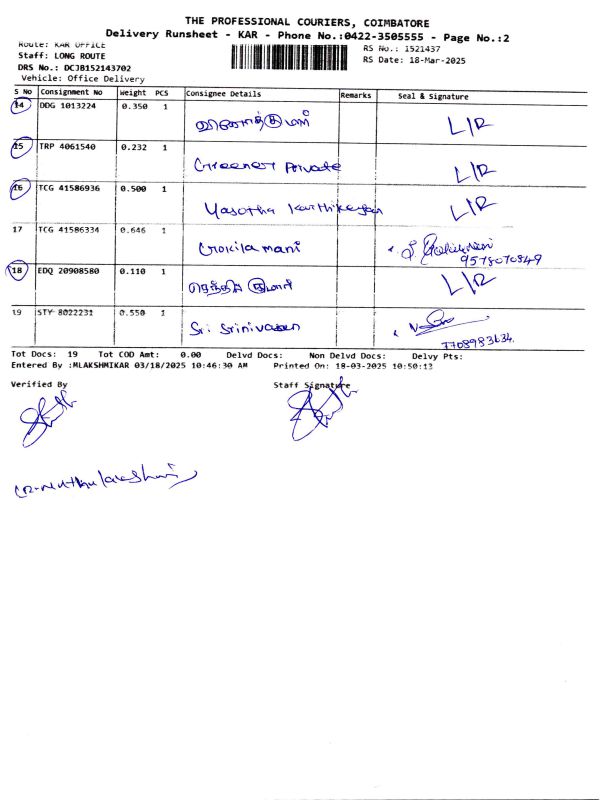 THE PROFESSIONAL COURIERS, COIMBATORE
Delivery Runsheet - KAR - Phone No.:0422-3505555 - Page No.:2
Route: KAR OFFICE
RS No.: 1521437
Staff: LONG ROUTE
RS Date: 18-Mar-2025
DRS No.: DCJB152143702
Vehicle: Office Delivery
S No Consignment No Weight PCS Consignee Details Remarks Seal & Signature
14 DDG 1013224 0.350 1 L/R
15 TRP 4061540 0.232 1 Greener Private L/R
16 TCG 41586936 0.500 1 Yasotha Karthikeyan L/R
17 TCG 41586334 0.646 1 Gokila mani
9578070849
18 EDQ 20908580 0.110 1 L/R
19 STY 8022231 0.550 1 Sri Srinivasan
7708983634
Tot Docs: 19 Tot COD Amt: 0.00 Delvd Docs: Non Delvd Docs: Delvy Pts:
Entered By :MLAKSHMIKAR 03/18/2025 10:46:30 AM Printed On: 18-03-2025 10:50:13
Verified By Staff Signature